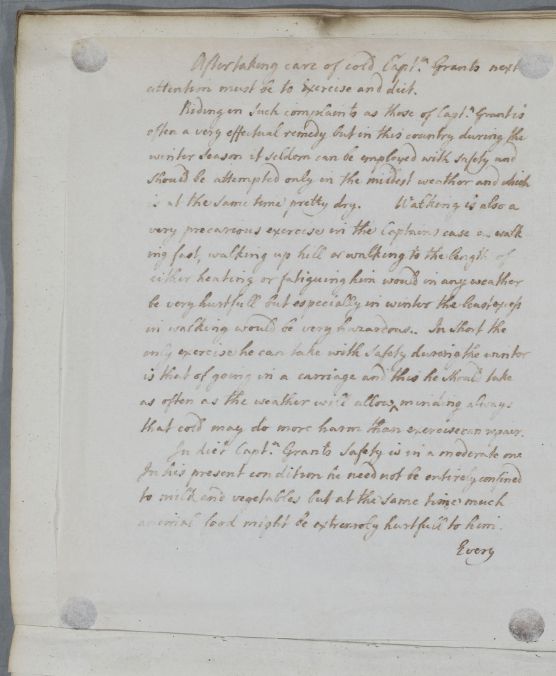 After taking care of cold Captn. Grants next
attention must be to exercise and diet.
Riding in such complaints as those of Captn. Grant is
often a very effectual remedy but in this country during the
winter season it seldom can be employed with safety and
should be attempted only in the mildest weather and which
is at the same time pretty dry. Walking is also a
very precarious exercise in the Captains case as walk
ing fast, walking up hill or walking to the length of
either heating or fatiguing him would in any weather
be very hurtfull but especially in winter the least excess
in walking would be very hazardous. In short the
only exercise he can take with safety during the winter
is that of going in a carriage and this he should take
as often as the weather will allow minding always
that cold may do more harm than exercise can repair.
In diet Captn. Grants safety is in a moderate one
In his present condition he need not be entirely confined
to milk and vegetables but at the same time much
animal food might be extremely hurtfull to him.
Every